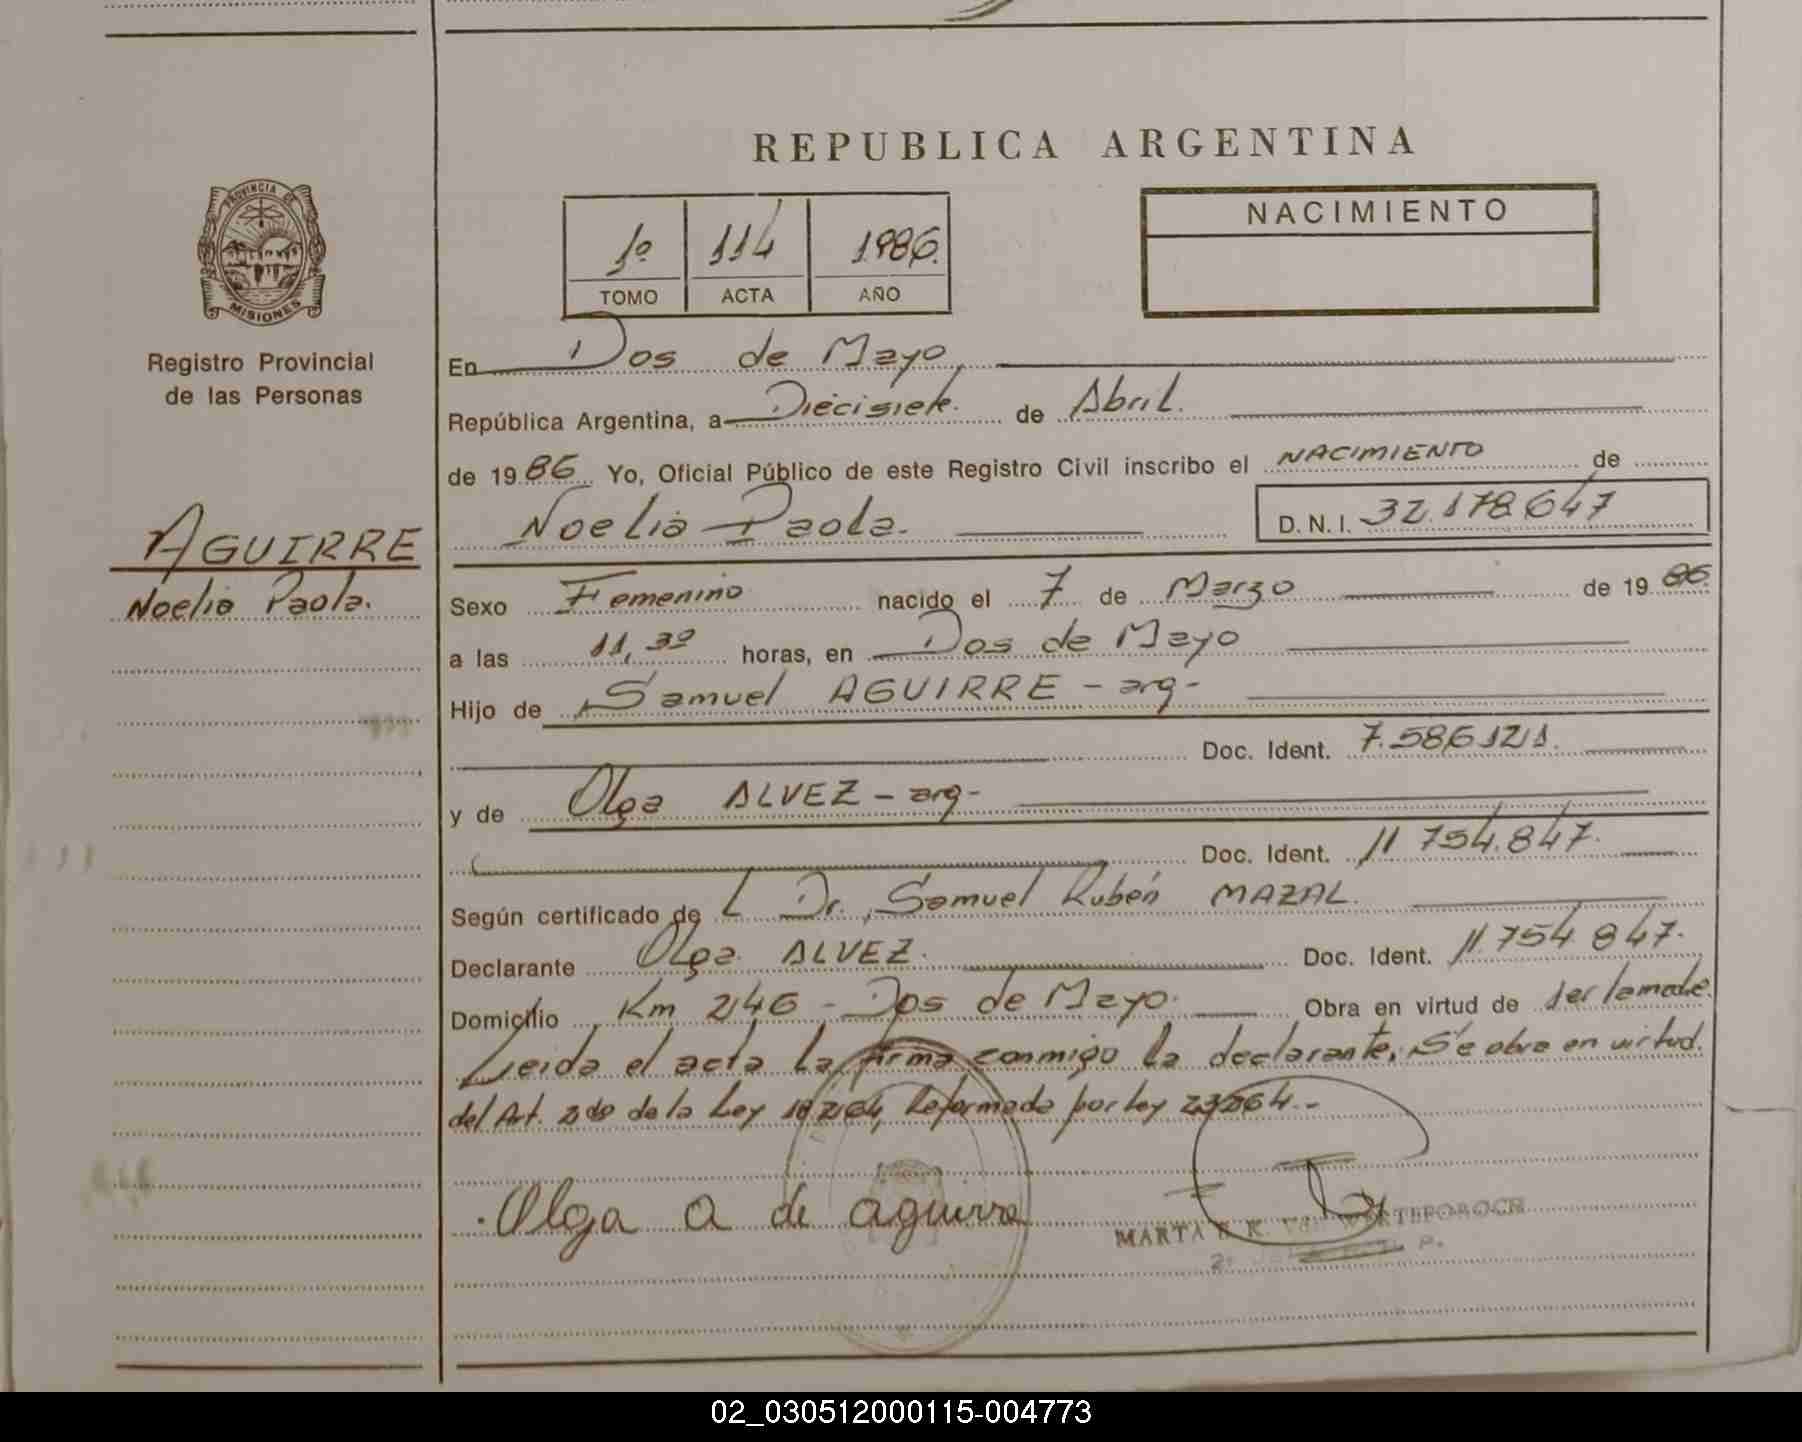 REPUBLICA ARGENTINA
PROVINCIA DE
MISIONES
Registro Provincial
de las Personas
1º 114 1986
TOMO ACTA AÑO
NACIMIENTO
En Dos de Mayo
República Argentina, a Diecisiete de Abril.
de 1986 Yo, Oficial Público de este Registro Civil inscribo el NACIMIENTO de
Noelia Paola.
D.N.I. 32.178.647
AGUIRRE
Noelia Paola.
Sexo Femenino nacido el 7 de Marzo de 1986.
a las 11,30 horas, en Dos de Mayo
Hijo de Samuel AGUIRRE - arg-
Doc. Ident. 7.586.121.
y de Olga ALVEZ - arg-
Doc. Ident. 11 754.847.
Según certificado de L Dr. Samuel Rubén MAZAL.
Declarante Olga ALVEZ. Doc. Ident. 11.754.847.
Domicilio Km 246 - Dos de Mayo. Obra en virtud de ser la madre.
Leida el acta la firma conmigo la declarante. Se obra en virtud.
del Art. 2do de la Ley 18264, Reformada por ley 23264.-
Olga A de aguirre
MARTA K.
02_030512000115-004773